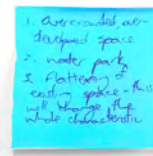 1. overcrowded, over-
developed space
2. water park
3. Flattening of
existing space - this
will change the
whole characteristic